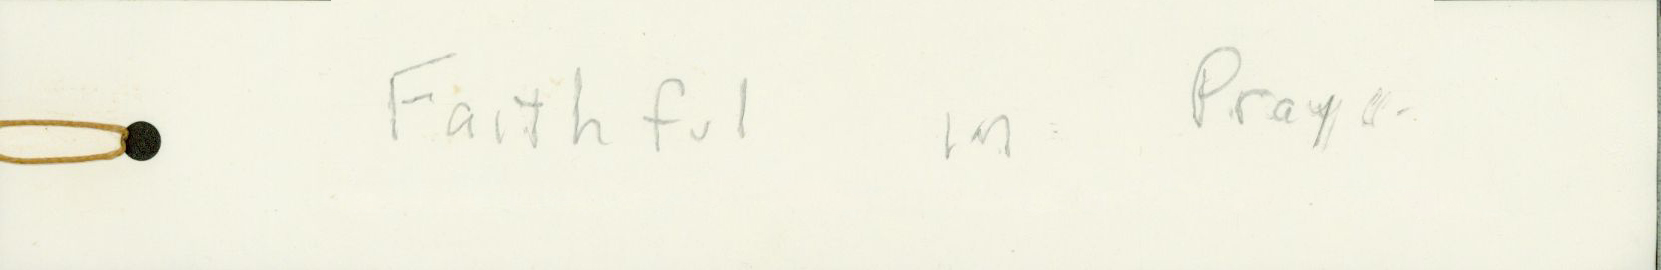 Faithful in Prayer